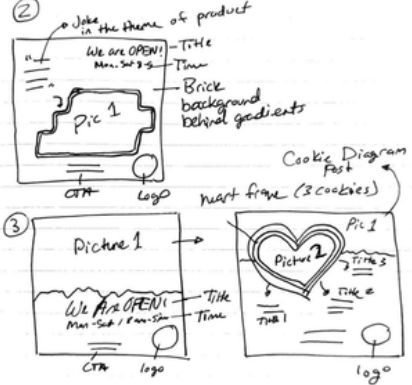 2
Joke
in the theme of product
We are OPEN! - Title
Mon-Sat 8-5 - Time
Pic 1
Brick
background
behind gradients
CTA
logo
Cookie Diagram
Post
heart frame (3 cookies)
3
Picture 1
We Are OPEN! - Title
Time
CTA
logo
Pic 1
Picture 2
Title 3
Title 2
Title 1
logo